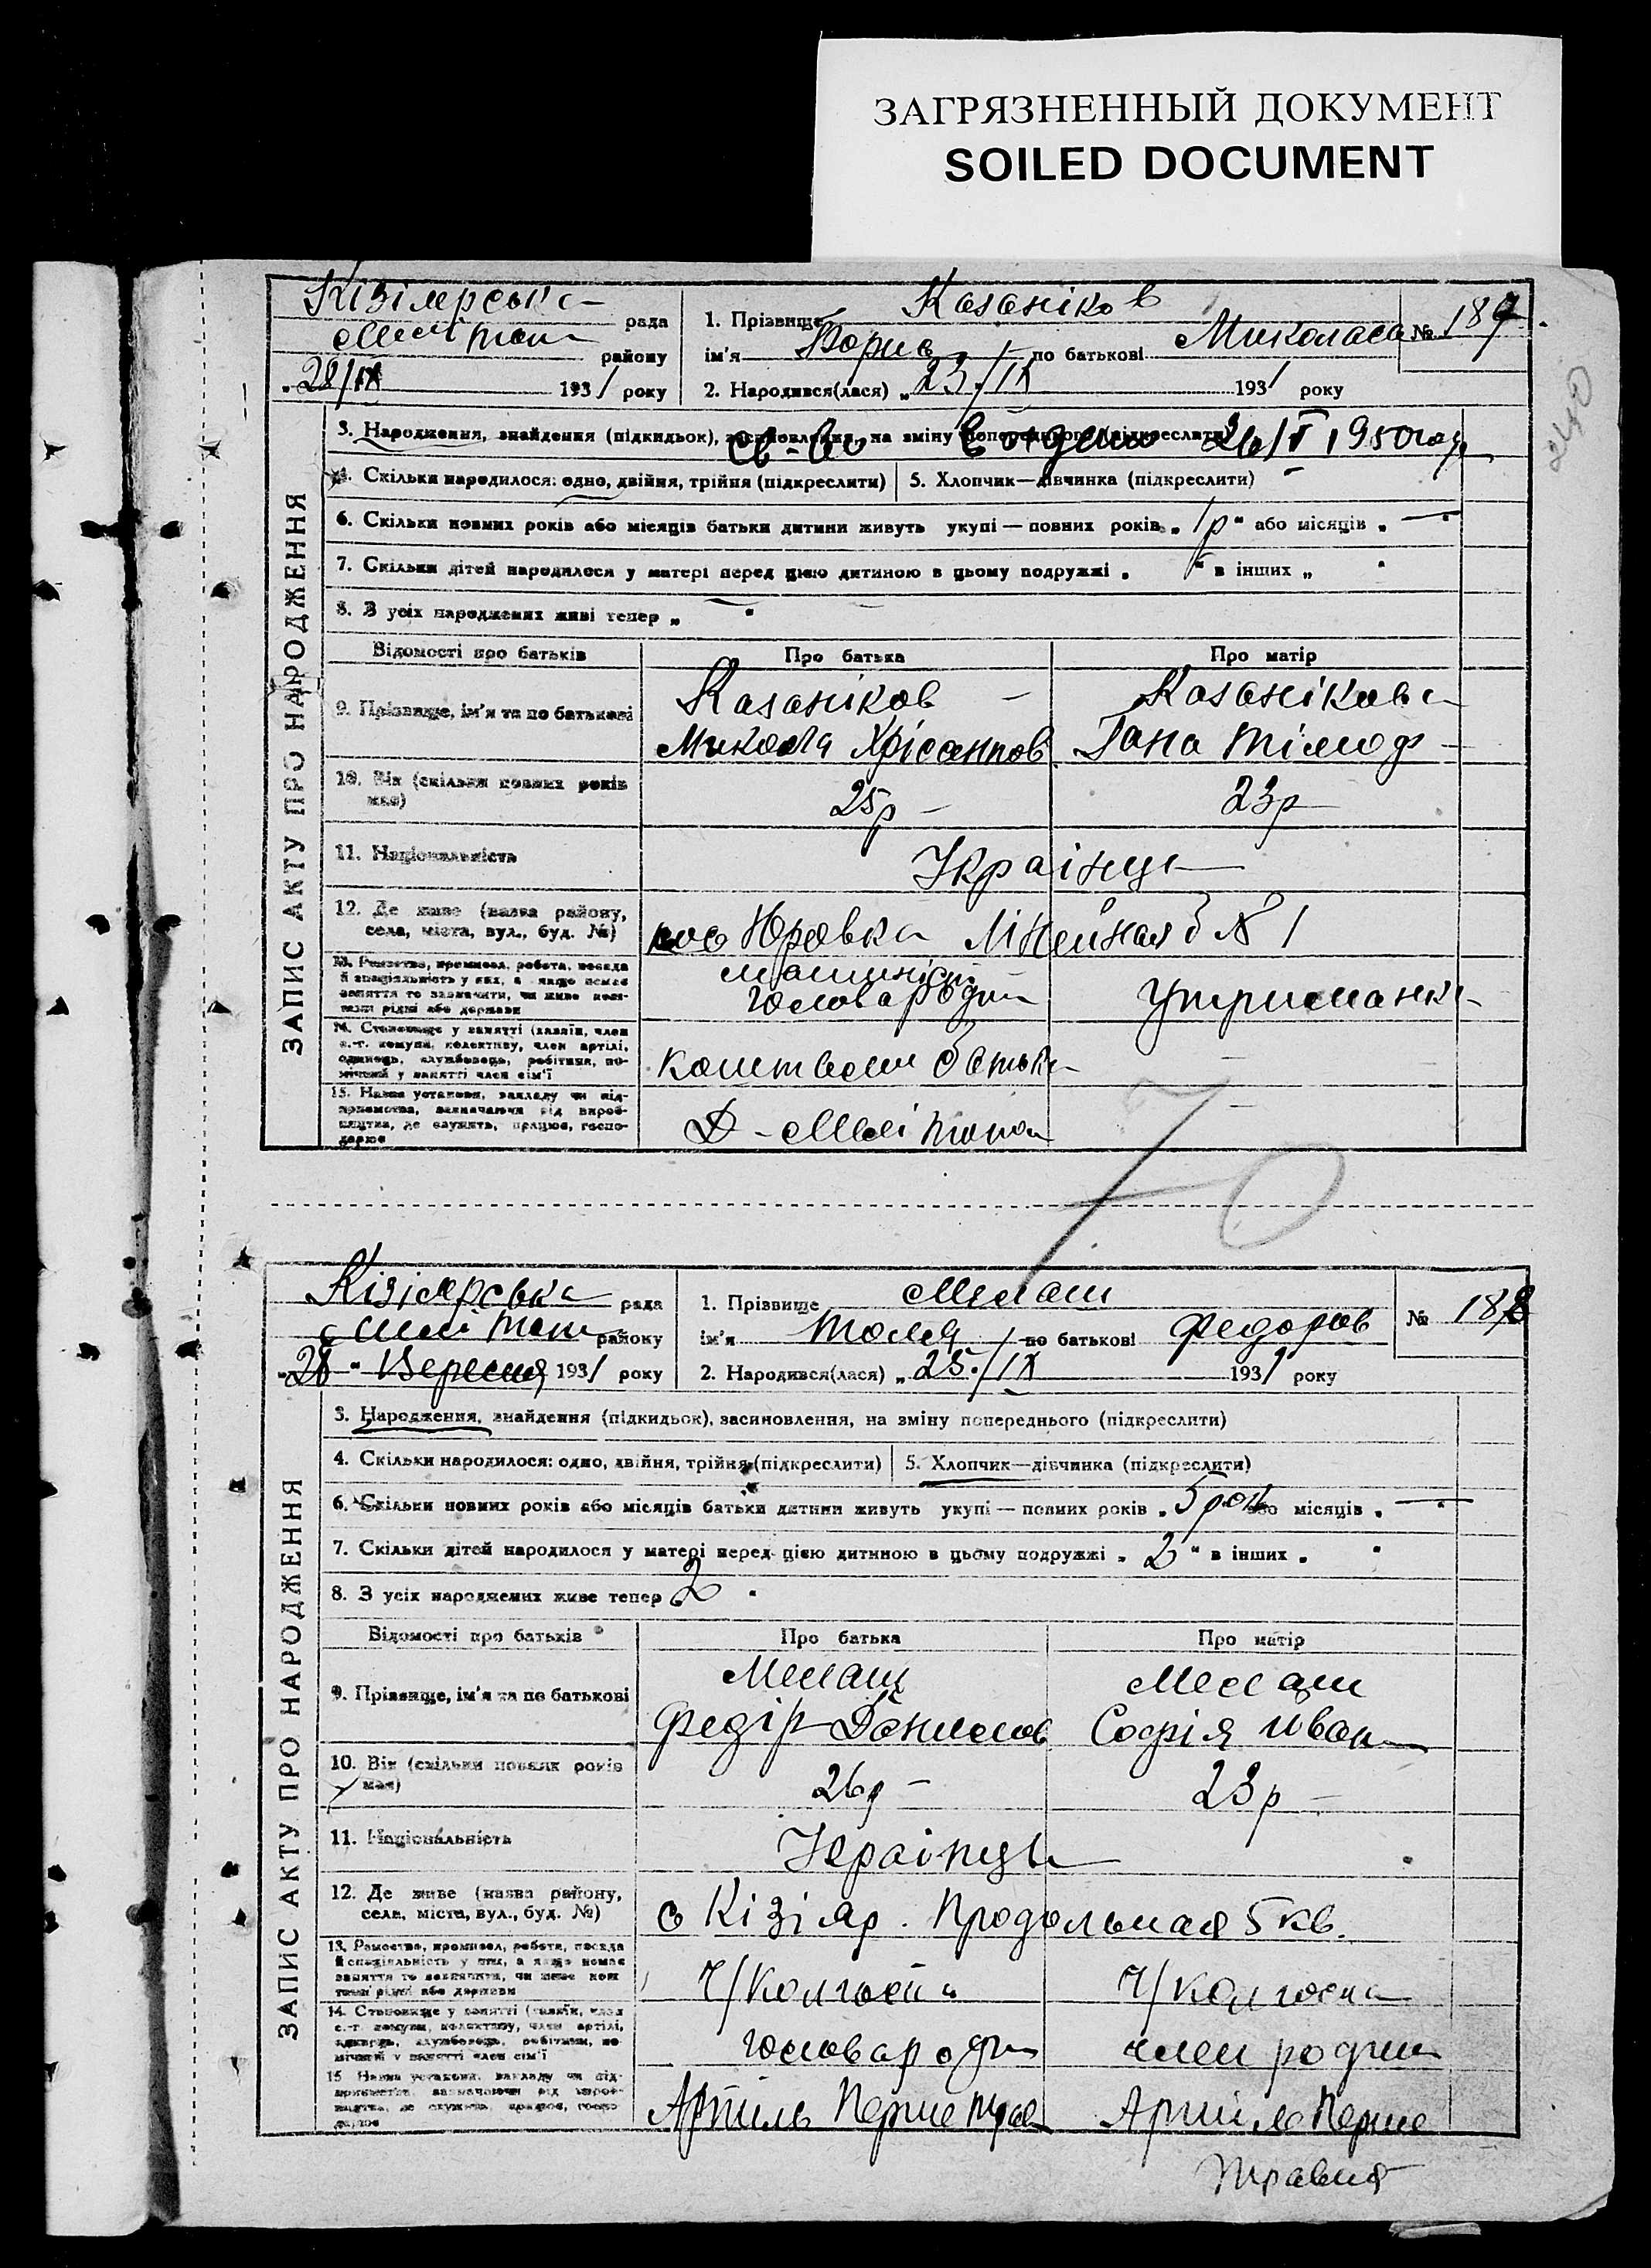 ЗАГРЯЗНЕННЫЙ ДОКУМЕНТ
SOILED DOCUMENT
240
ЗАПИС АКТУ ПРО НАРОДЖЕННЯ
Кізіярська рада
Мелітоп району
„28/IX 1931 року
1. Прізвище Казаніков
ім'я Борис по батькові Миколаєв
№ 187
2. Народився(лася) „23/IX 1931 року
3. Народження, знайдення (підкидьок), засиновлення, на зміну попереднього (підкреслити)
св-во выдано 26/V 1950 год
4. Скільки народилося: одно, двійня, трійня (підкреслити) 5. Хлопчик—дівчинка (підкреслити)
6. Скільки повних років або місяців батьки дитини живуть укупі — повних років „ 1р " або місяців „ — "
7. Скільки дітей народилося у матері перед цією дитиною в цьому подружжі „ " в інших „ "
8. З усіх народжених живі тепер „ — "
Відомості про батьків Про батька Про матір
9. Прізвище, ім'я та по батькові
Казаніков Казанікова
Микола Хрісантов Гана Тімоф
10. Вік (скільки повних років має)
25р 23р
11. Національність
Українці
12. Де живе (назва району, села, міста, вул., буд. №)
Юровка Лінейная б № 1
13. Ремество, промисел, робота, посада й спеціяльність у них, а якщо немає заняття то зазначити, чи живе коштами рідні або держави
машиніст
голова родин Утриманка
14. Становище у занятті (хазяїн, член с.-г. комуни, колективу, член артілі, одинець, службовець, робітник, помічний у занятті член сім'ї
коштвом батька —
15. Назва установи, закладу чи підприємства, зазначаючи рід виробництва, де служить, працює, господарює
Д - Мелітополь —
70
ЗАПИС АКТУ ПРО НАРОДЖЕННЯ
Кізіярська рада
Мелітоп району
„28" Вересня 1931 року
1. Прізвище Мелащ
ім'я Толя по батькові Федоров
№ 188
2. Народився(лася) „25/IX 1931 року
3. Народження, знайдення (підкидьок), засиновлення, на зміну попереднього (підкреслити)
4. Скільки народилося: одно, двійня, трійня (підкреслити) 5. Хлопчик—дівчинка (підкреслити)
6. Скільки повних років або місяців батьки дитини живуть укупі — повних років „ 5 рок або місяців „ — "
7. Скільки дітей народилося у матері перед цією дитиною в цьому подружжі „ 2 " в інших „ "
8. З усіх народжених живе тепер „ 2 "
Відомості про батьків Про батька Про матір
9. Прізвище, ім'я та по батькові
Мелащ Мелащ
Федір Данилов Софія Иван
10. Вік (скільки повних років має)
26р 23р
11. Національність
Українці
12. Де живе (назва району, села, міста, вул., буд. №)
с Кізіяр. Продольная 5 кв.
13. Ремество, промисел, робота, посада й спеціяльність у них, а якщо немає заняття то зазначити, чи живе коштами рідні або держави
Ч/Колгоспа Ч/колгоспа
14. Становище у занятті (хазяїн, член с.-г. комуни, колективу, член артілі, одинець, службовець, робітник, помічний у занятті член сім'ї
голова родин член родин
15. Назва установи, закладу чи підприємства, зазначаючи рід виробництва, де служить, працює, господарює
Артиль Перше трав Артиль Перше
Травня